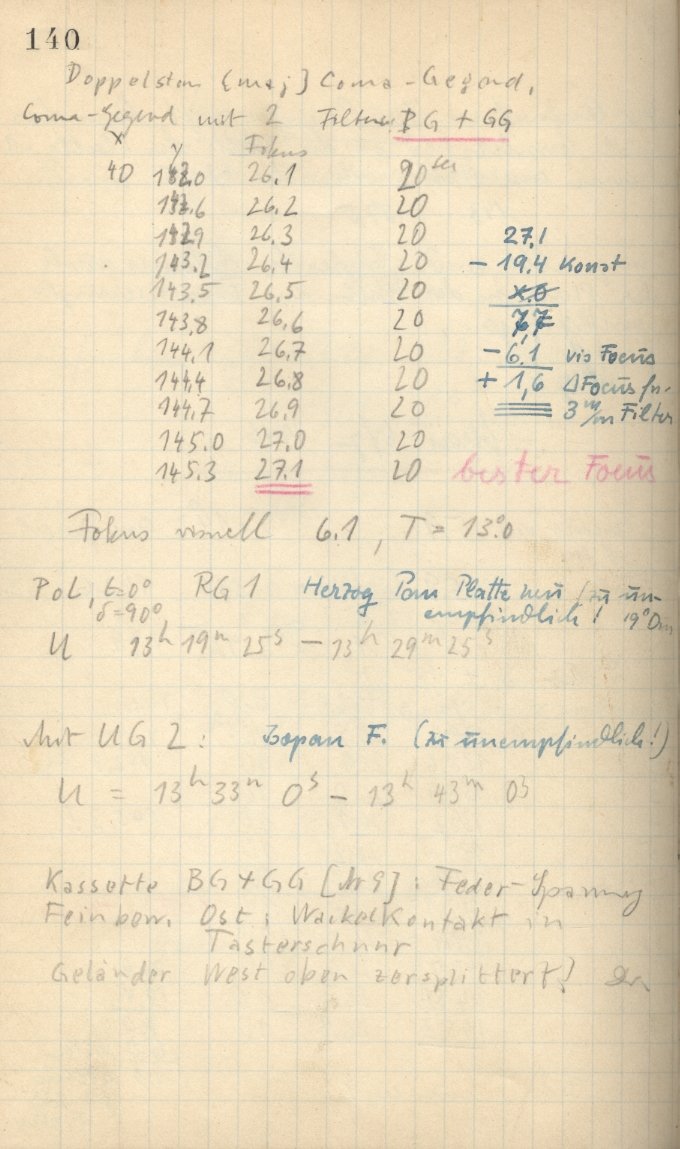 140
Doppelstern ζ maj Coma-Gegend,
Coma-Gegend mit 2 Filtern BG + GG
x y Fokus
40 142.0 26.1 20 sec
142.6 26.2 20
142.9 26.3 20 27,1
143.2 26.4 20 - 19.4 Konst
143.5 26.5 20
143.8 26.6 20 7,7
144.1 26.7 20 - 6.1 vis Focus
144.4 26.8 20 + 1,6 Δ Focus für
144.7 26.9 20 3 m/m Filter
145.0 27.0 20
145.3 27.1 20 bester Focus
Fokus visuell 6.1, T = 13°.0
Pol, t=0° RG 1 Herzog Pan Platte neu (zu un-
δ=90°, empfindlich!
U 13h 19m 25s - 13h 29m 25s
Mit UG 2: Isopan F. (zu unempfindlich!)
U = 13h 33m 0s - 13h 43m 0s
Kassette BG + GG [Nr 9]: Feder-Spannung
Feinbew. Ost: Wackelkontakt in
Tasterschnur
Geländer West oben zersplittert!